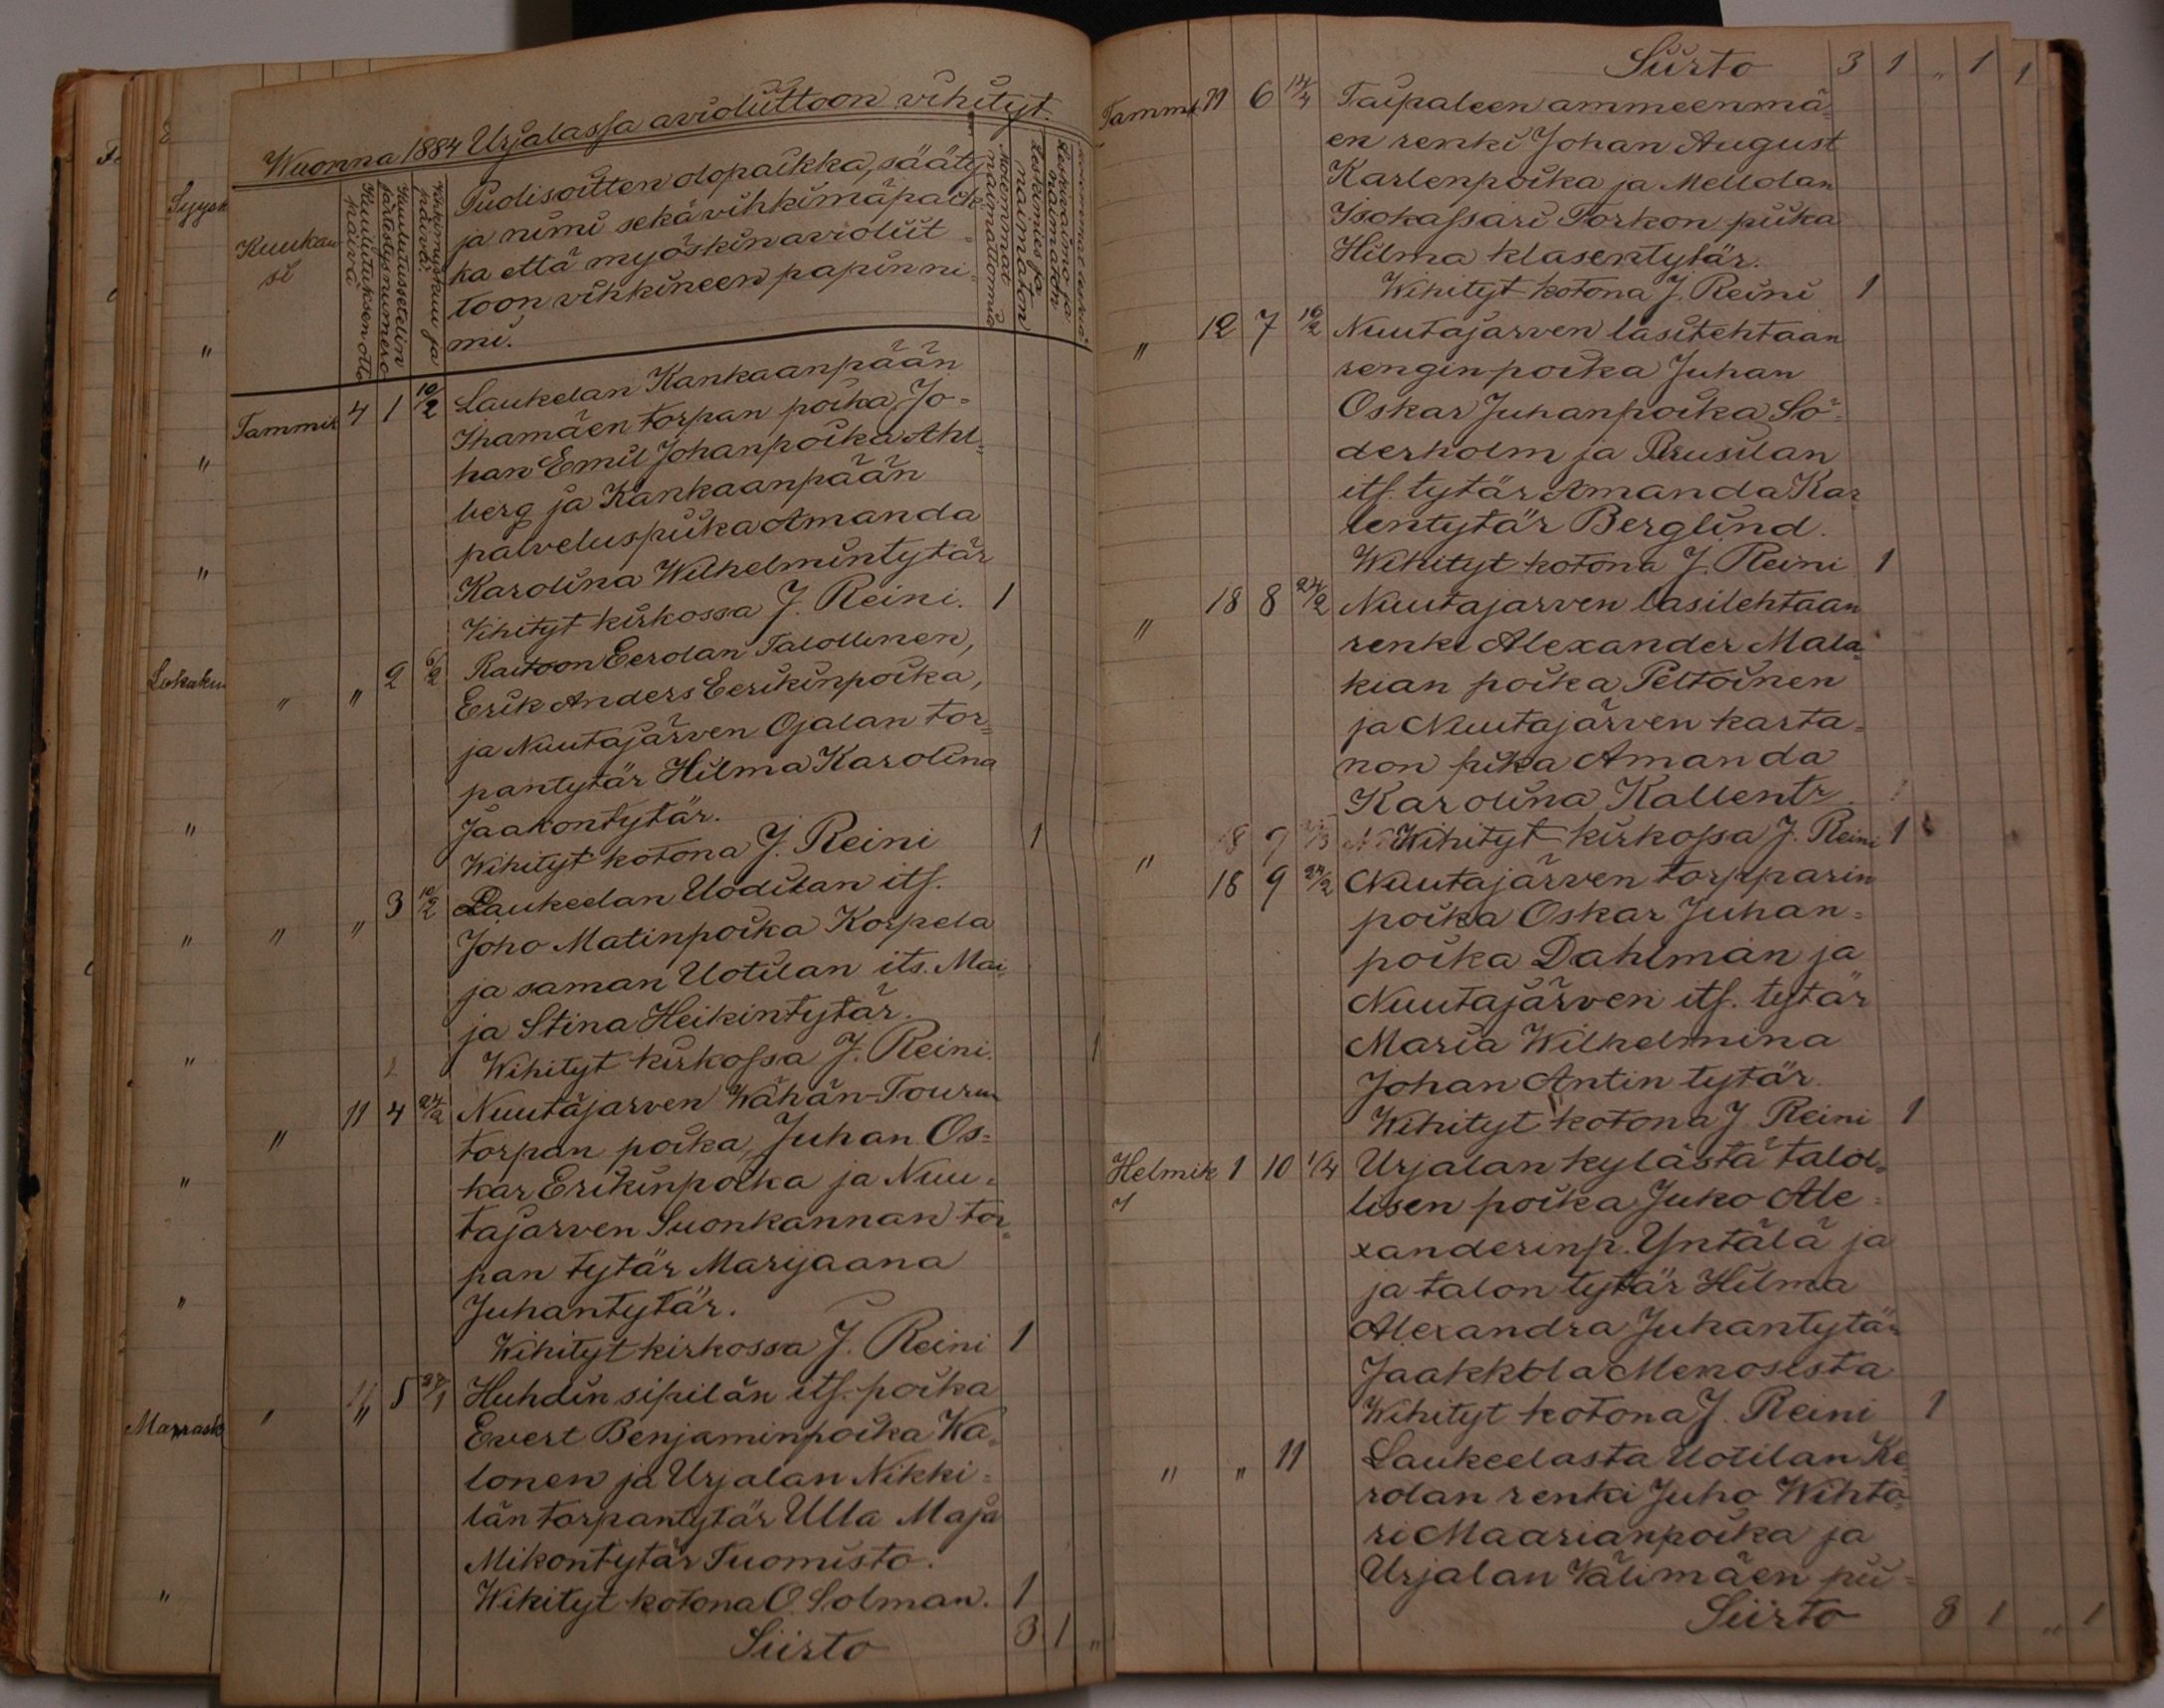 Wuonna 1884 Urjalassa avioliittoon vihityt.
Kuukausi
Kuulutuksen otto päivä
Kuulutussetelin järjestysnumero
Vihkimyskuu ja päivä.
Puolisoitten olopaikka, sääty
ja nimi sekä vihkimäpaik
ka että myöskin avioliit-
toon vihkineen papin ni-
mi.
Molemmat naimattomia
Leskimies ja naimaton
Leskivaimo ja naimaton
Molemmat leskiä
Tammik 4 1 10/2 Laukelan Kankaanpään
Ihamäen torpan poika, Jo-
han Emil Johanpoika Ahl-
berg ja Kankaanpään
palveluspiika Amanda
Karolina Wilhelmintytär
Vihityt kirkossa J. Reini. 1
" " 2 6/2 Raitoon Eerolan Talollinen,
Erik Anders Eerikinpoika,
ja Nuutajärven Ojalan tor-
pantytär Hilma Karolina
Jaakontytär.
Wihityt kotona J. Reini 1
" " 3 10/2 Laukeelan Uodilan its.
Joho Matinpoika Korpela
ja saman Uotilan its. Mai-
ja Stina Heikintytär.
Wihityt kirkossa J. Reini. 1
" 11 4 24/2 Nuutajarven Wähän-Tourun
torpan poika, Juhan Os-
kar Erikinpoika ja Nuu-
tajarven Suonkannan tor-
pan tytär Marijaana
Juhantytär.
Wihityt kirkossa J. Reini 1
" " 5 27/1 Huhdin sipilän its. poika
Evert Benjaminpoika Ka-
lonen ja Urjalan Nikki-
län torpantytär Ulla Maja
Mikontytär Tuomisto.
Wihityt kotona O. Solman. 1
Siirto 3 1 "
Syysk
"
"
"
Lokakuu
"
"
"
"
"
Marrask
"
Siirto 3 1 " 1 1
Tammik 11 6 14/4 Taipaleen ammeenmä-
en renki Johan August
Karlenpoika ja Mellolan
Isokassari Torkon piika
Hilma klasentytär.
Wihityt kotona J. Reini 1
" 12 7 10/2 Nuutajarven lasitehtaan
rengin poika Juhan
Oskar Juhanpoika Sö-
derholm ja Prusilan
its. tytär Amanda Kar-
lentytär Berglind.
Wihityt kotona J. Reini 1
" 18 8 24/2 Nuutajarven lasilehtaan
renki Alexander Mala-
kian poika Peltoinen
ja Nuutajärven karta-
non piika Amanda
Karolina Kallentr.
Wihityt kirkossa J. Reini 1
" 18 9 24/2 Nuutajärven torpparin
poika Oskar Juhan-
poika Dahlman ja
Nuutajärven its. tytär
Maria Wilhelmina
Johan Antin tytär
Wihityt kotona J Reini 1
Helmik 1 10 1/4 Urjalan kylästä talol-
lisen poika Juko Ale-
xanderinp. Yntälä ja
ja talon tytär Hilma
Alexandra Juhantytär
Jaakkola Menosista
Wihityt kotona J. Reini 1
" " 11 Laukeelasta Uotilan Ke-
rolan renki Juho Wihto-
ri Maarianpoika ja
Urjalan Välimäen pii-
Siirto 8 1 " 1